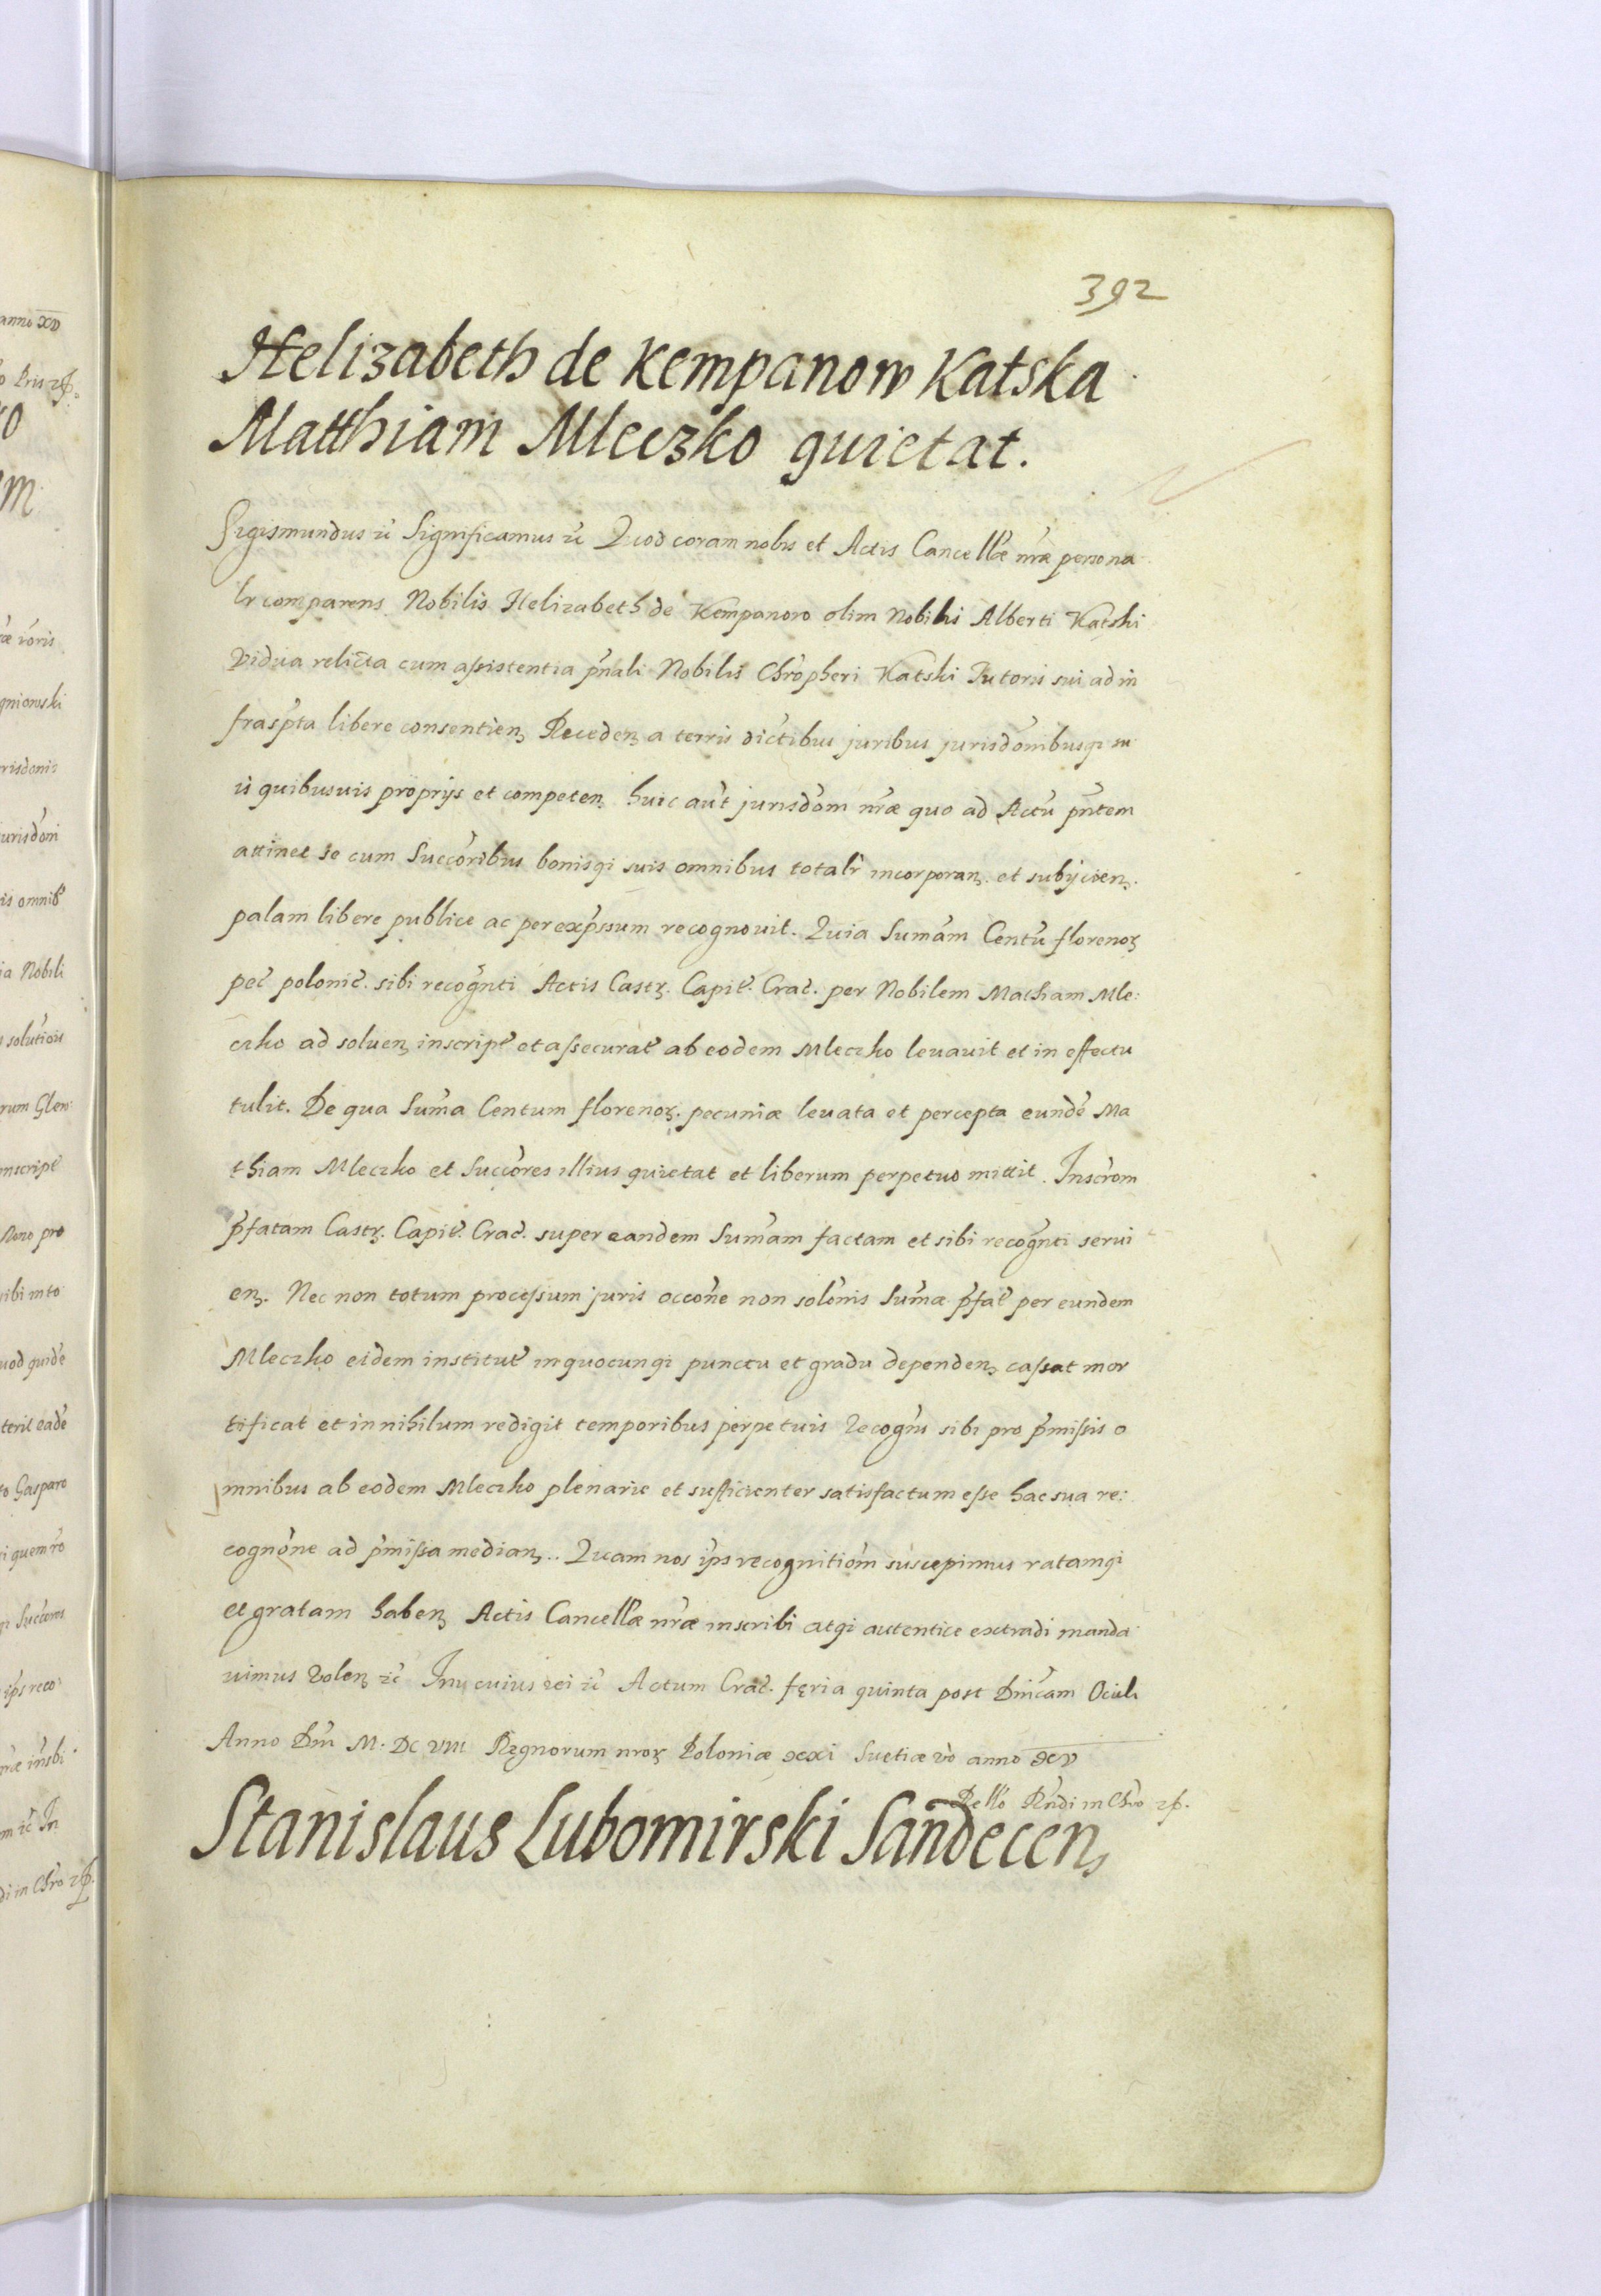 392
Helizabeth de Kempanow Katska
Matthiam Mleczko quietat.
Sigismundus zc̃ Significamus zc̃ Quod coram nobis et Actis Cancellæ nr̃æ persona
lr comparens Nobilis Helizabeth de Kempanow olim Nobilis Alberti Katski
Vidua relicta cum assistentia p̃nali Nobilis Chr̃opheri Katski Tutoris sui ad in
frasp̃ta libere consentieñ Recedeñ a terris dictibus juribus jurisdõnibusqꝫ su
is quibusuis proprijs et competeñ huic aũt jurisdõm nr̃æ quo ad Actũ p̃ntem
attinet se cum Succõribus bonisqꝫ suis omnibus totalr̃ incorporañ. et subijcieñ.
palam libere publice ac per exp̃ssum recognouit. Quia Sum̃am Centũ florenoꝝ
pec̃ polonic̃. sibi recog̃nti Actis Castꝝ. Capit̃. Crac̃. per Nobilem Mathiam Mle:
czko ad solueñ inscript̃ et assecurat̃ ab eodem Mleczko leuauit et in effectu
tulit. De qua Sum̃a Centum florenoꝝ. pecuniæ leuata et percepta eundẽ Ma
thiam Mleczko et Succõres illius quietat et liberum perpetuo mittit. Inscr̃om
p̃fatam Castꝝ. Capit̃. Crac̃. super eandem Sum̃am factam et sibi recog̃nti serui
eñ. Nec non totum processum juris occõne non solõnis Sum̃æ p̃fat̃ per eundem
Mleczko eidem institut̃ in quocunqꝫ punctu et gradu dependeñ cassat mor
tificat et in nihilum redigit temporibus perpetuis Recog̃ns sibi pro p̃missis o
mnibus ab eodem Mleczko plenarie et sufficienter satisfactum esse hac sua re:
cognõne ad p̃missa mediañ.. Quam nos ip̃s recognitiõm suscepimus ratamqꝫ
et gratam habeñ Actis Cancellæ nr̃æ inscribi atqꝫ autentice extradi manda
uimus Voleñ zc̃ In cuius rei zc̃ Actum Crac̃. feria quinta post Dnĩcam Oculi
Anno Dnĩ M. DC VIII Regnorum nr̃oꝝ Poloniæ xxi Suetiæ vo anno xv
Rello Rñdi in Chr̃o zp̃.
Stanislaus Lubomirski Sandeceñ